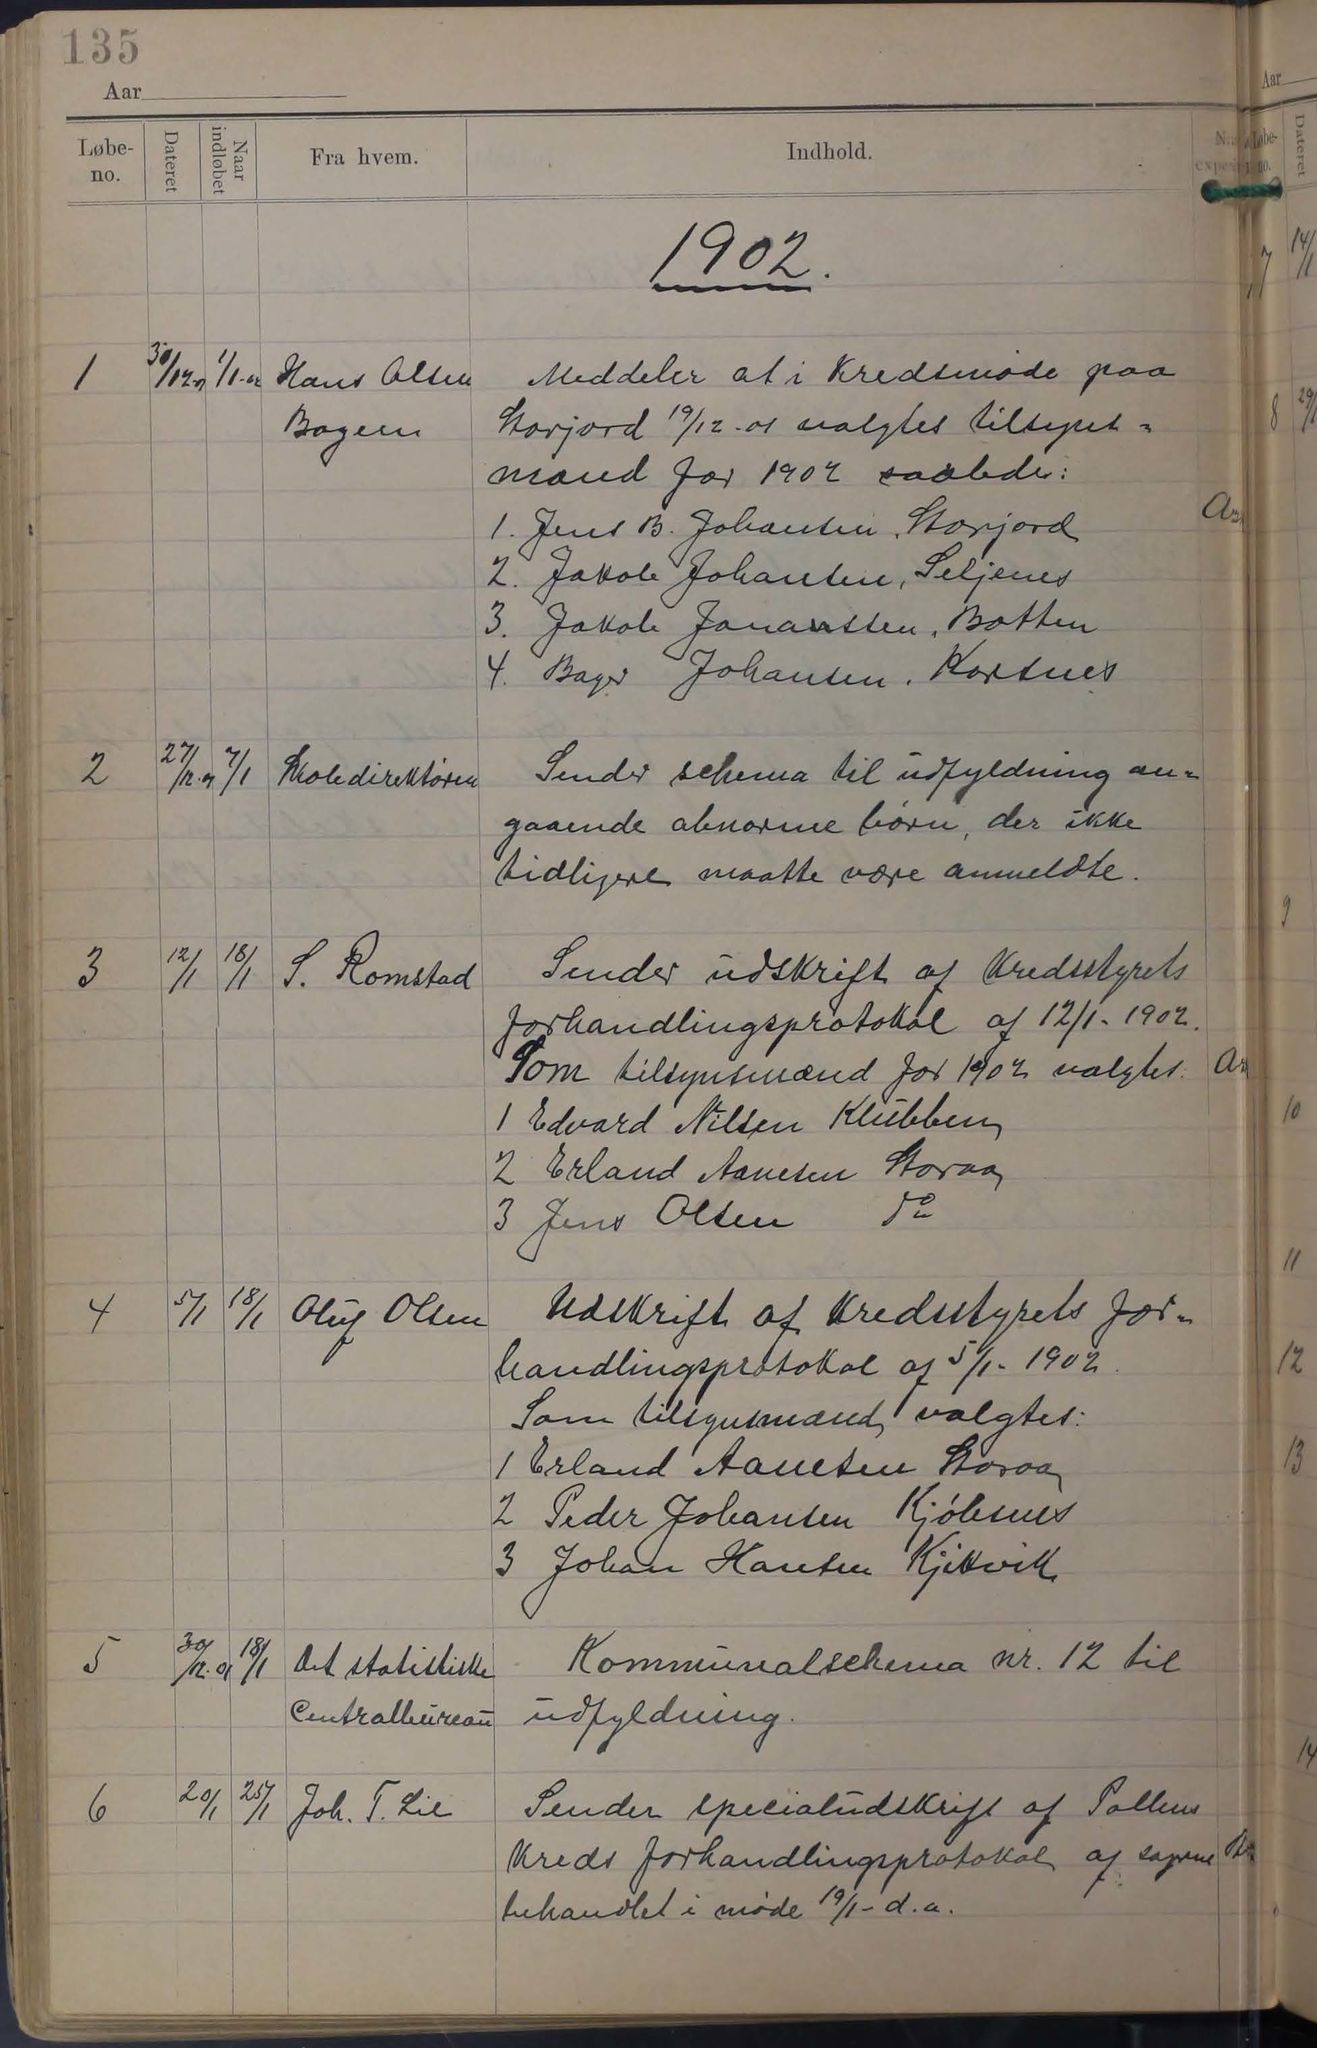 135
Aar
Løbe-
no.
Dateret
Naar
indløbet
Fra hvem.
Indhold.
1902.
1 30/12-01 1/1-02 Hans Olsen Meddeler at i Kredsmøde paa
Bogen Storjord 19/12-01 valgtes tilsyns-
mænd for 1902 saaledes:
1. Jens B. Johansen, Storjord
2. Jakob Johansen, Seljenes
3. Jakob Johanssen, Botten
4. Bager Johansen, Korsnes
2 27/12-01 7/1 Skoledirektøren Sender schema til udfyldning an-
gaaende abnorme børn, der ikke
tidligere maatte være anmeldte.
3 12/1 18/1 S. Romstad Sender udskrift af Kredsstyrets
forhandlingsprotokol af 12/1-1902.
Som tilsynsmænd for 1902 valgtes:
1 Edvard Nilsen Klubben
2 Erland Aanesen Storaa
3 Jens Olsen do
4 5/1 18/1 Oluf Olsen Udskrift af Kredsstyrets for-
handlingsprotokol af 5/1-1902.
Som tilsynsmænd valgtes:
1 Erland Aanesen Storaa
2 Peder Johansen Kjøbsnes
3 Johan Hansen Kjikvik
5 30/12-01 18/1 Det statistiske Kommunalschema nr. 12 til
Centralbureau udfyldning.
6 20/1 25/1 Joh. T. Lie Sender specialudskrift af Pollens
Kreds forhandlingsprotokol af sagerne
behandlet i møde 19/1-d.a.
Aar
Dateret
7 14/1
8
9
10
11
12
13
14